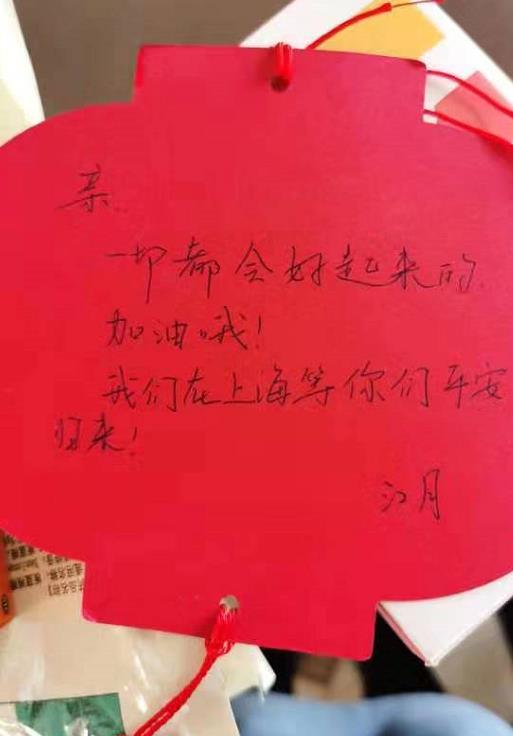 亲
一切都会好起来的
加油哦!
我们在上海等你们平安
归来!
江月